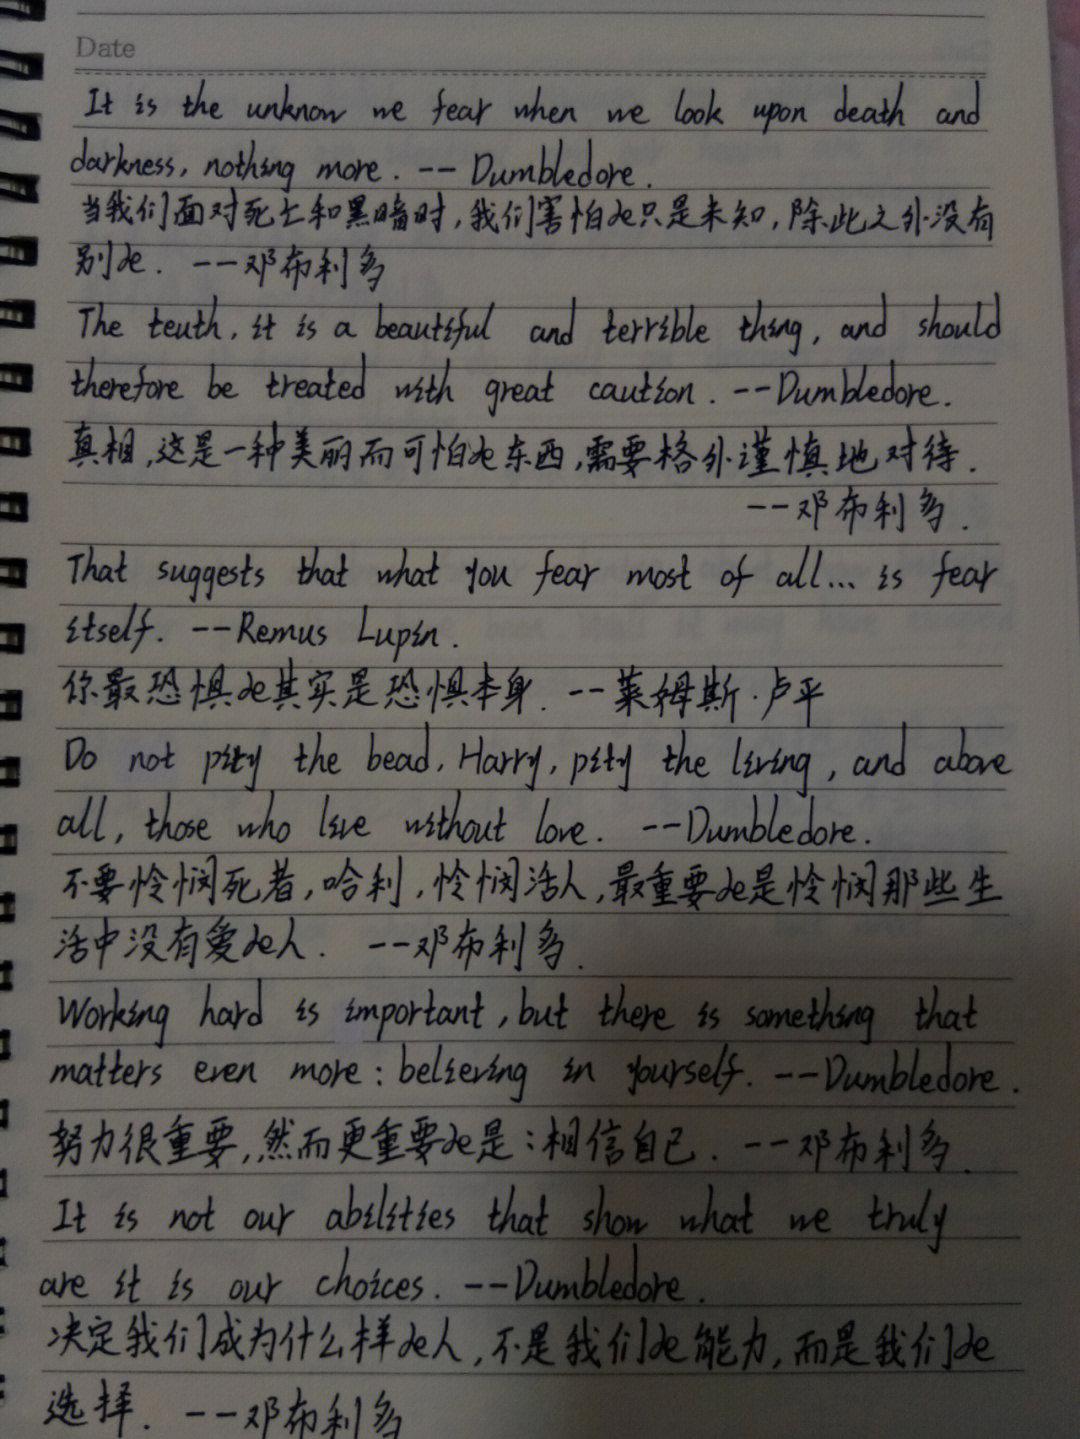 Date
It is the unknow we fear when we look upon death and
darkness, nothing more. -- Dumbledore.
当我们面对死亡和黑暗时,我们害怕de只是未知,除此之外没有
别de. --邓布利多
The teuth, it is a beautiful and terrible thing, and should
therefore be treated with great caution. --Dumbledore.
真相,这是一种美丽而可怕de东西,需要格外谨慎地对待.
--邓布利多.
That suggests that what you fear most of all... is fear
itself. --Remus Lupin.
你最恐惧de其实是恐惧本身. --莱姆斯·卢平
Do not pity the bead, Harry, pity the living, and above
all, those who live without love. --Dumbledore.
不要怜悯死者,哈利,怜悯活人,最重要de是怜悯那些生
活中没有爱de人. --邓布利多.
Working hard is important, but there is something that
matters even more: believing in yourself. --Dumbledore.
努力很重要,然而更重要de是:相信自己. --邓布利多.
It is not our abilities that show what we truly
are it is our choices. --Dumbledore.
决定我们成为什么样de人,不是我们de能力,而是我们de
选择. --邓布利多